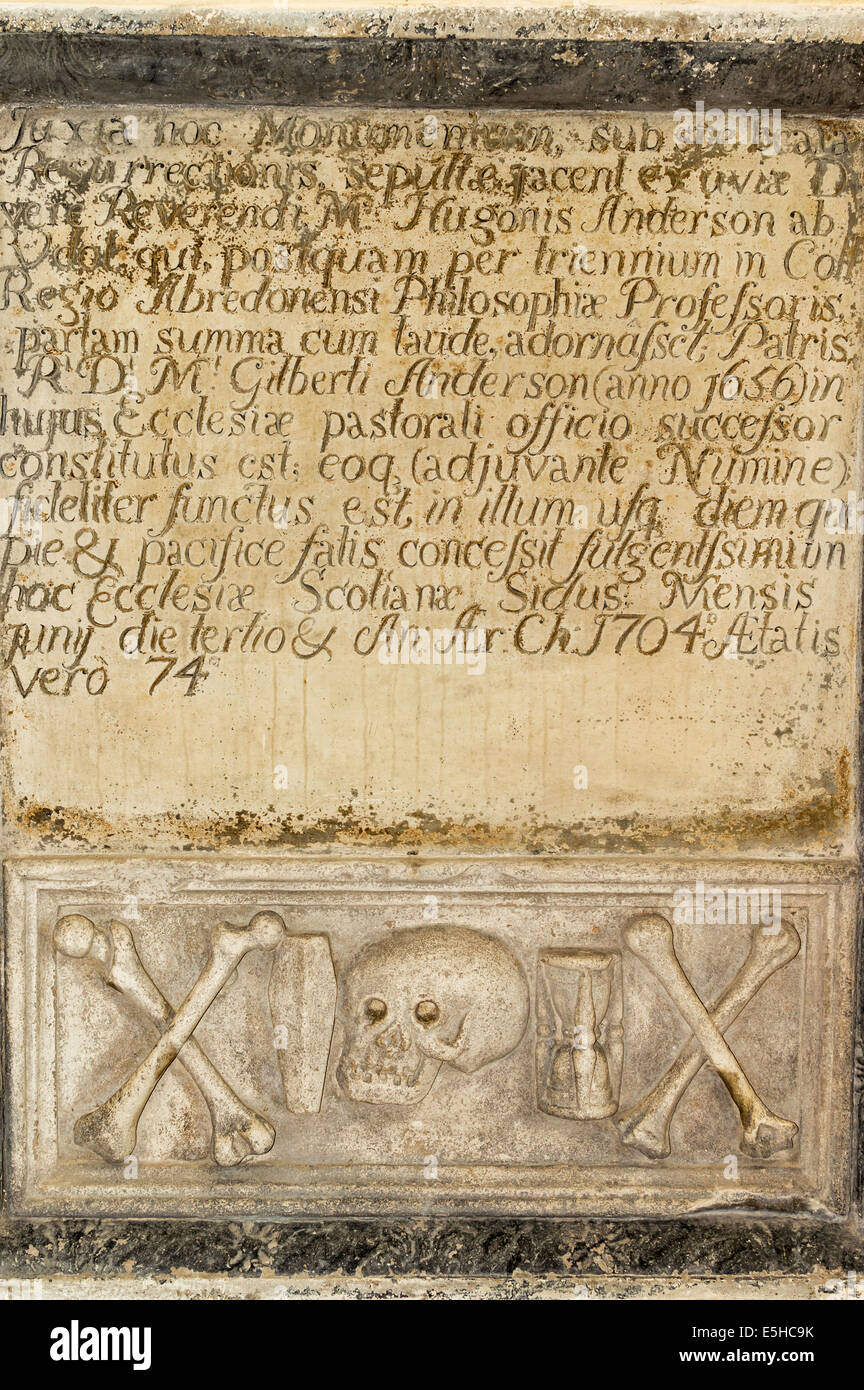 Juxta hoc Monumentum, sub spe beata
Resurrectionis, sepultæ jacent exuviæ D
vere Reverendi Mri Hugonis Anderson ab
Udol, qui, postquam per triennium in Coll
Regio Abredonensi Philosophiæ Profeſsoris,
partam summa cum laude, adornaſset, Patris,
R.D.M. Gilberti Anderson (anno 1656) in
hujus Ecclesiæ pastorali officio succeſsor
constitutus est: eoq, (adjuvante Numine)
fideliter functus est, in illum usq, diem qu
pie & pacifice fatis conceſsit fulgentiſsimum
hoc Ecclesiæ Scotianæ Sidus: Mensis
Junij die tertio & An. Ær. Ch. 1704o Ætatis
vero 74o
alamy
alamy stock photo
E5HC9K
www.alamy.com